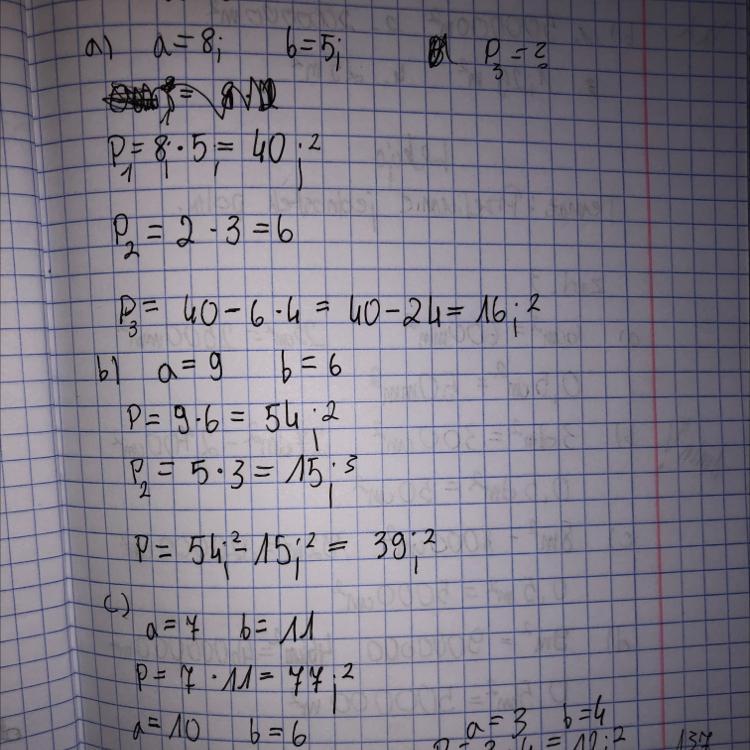 a) a=8j b=5j P₃=?
P₁=8j·5j=40j²
P₂=2·3=6
P₃=40-6·4=40-24=16j²
b) a=9 b=6
P=9·6=54j²
P₂=5·3=15j³
P=54j²-15j²=39j²
c)
a=7 b=11
P=7·11=77j²
a=10 b=6
a=3 b=4